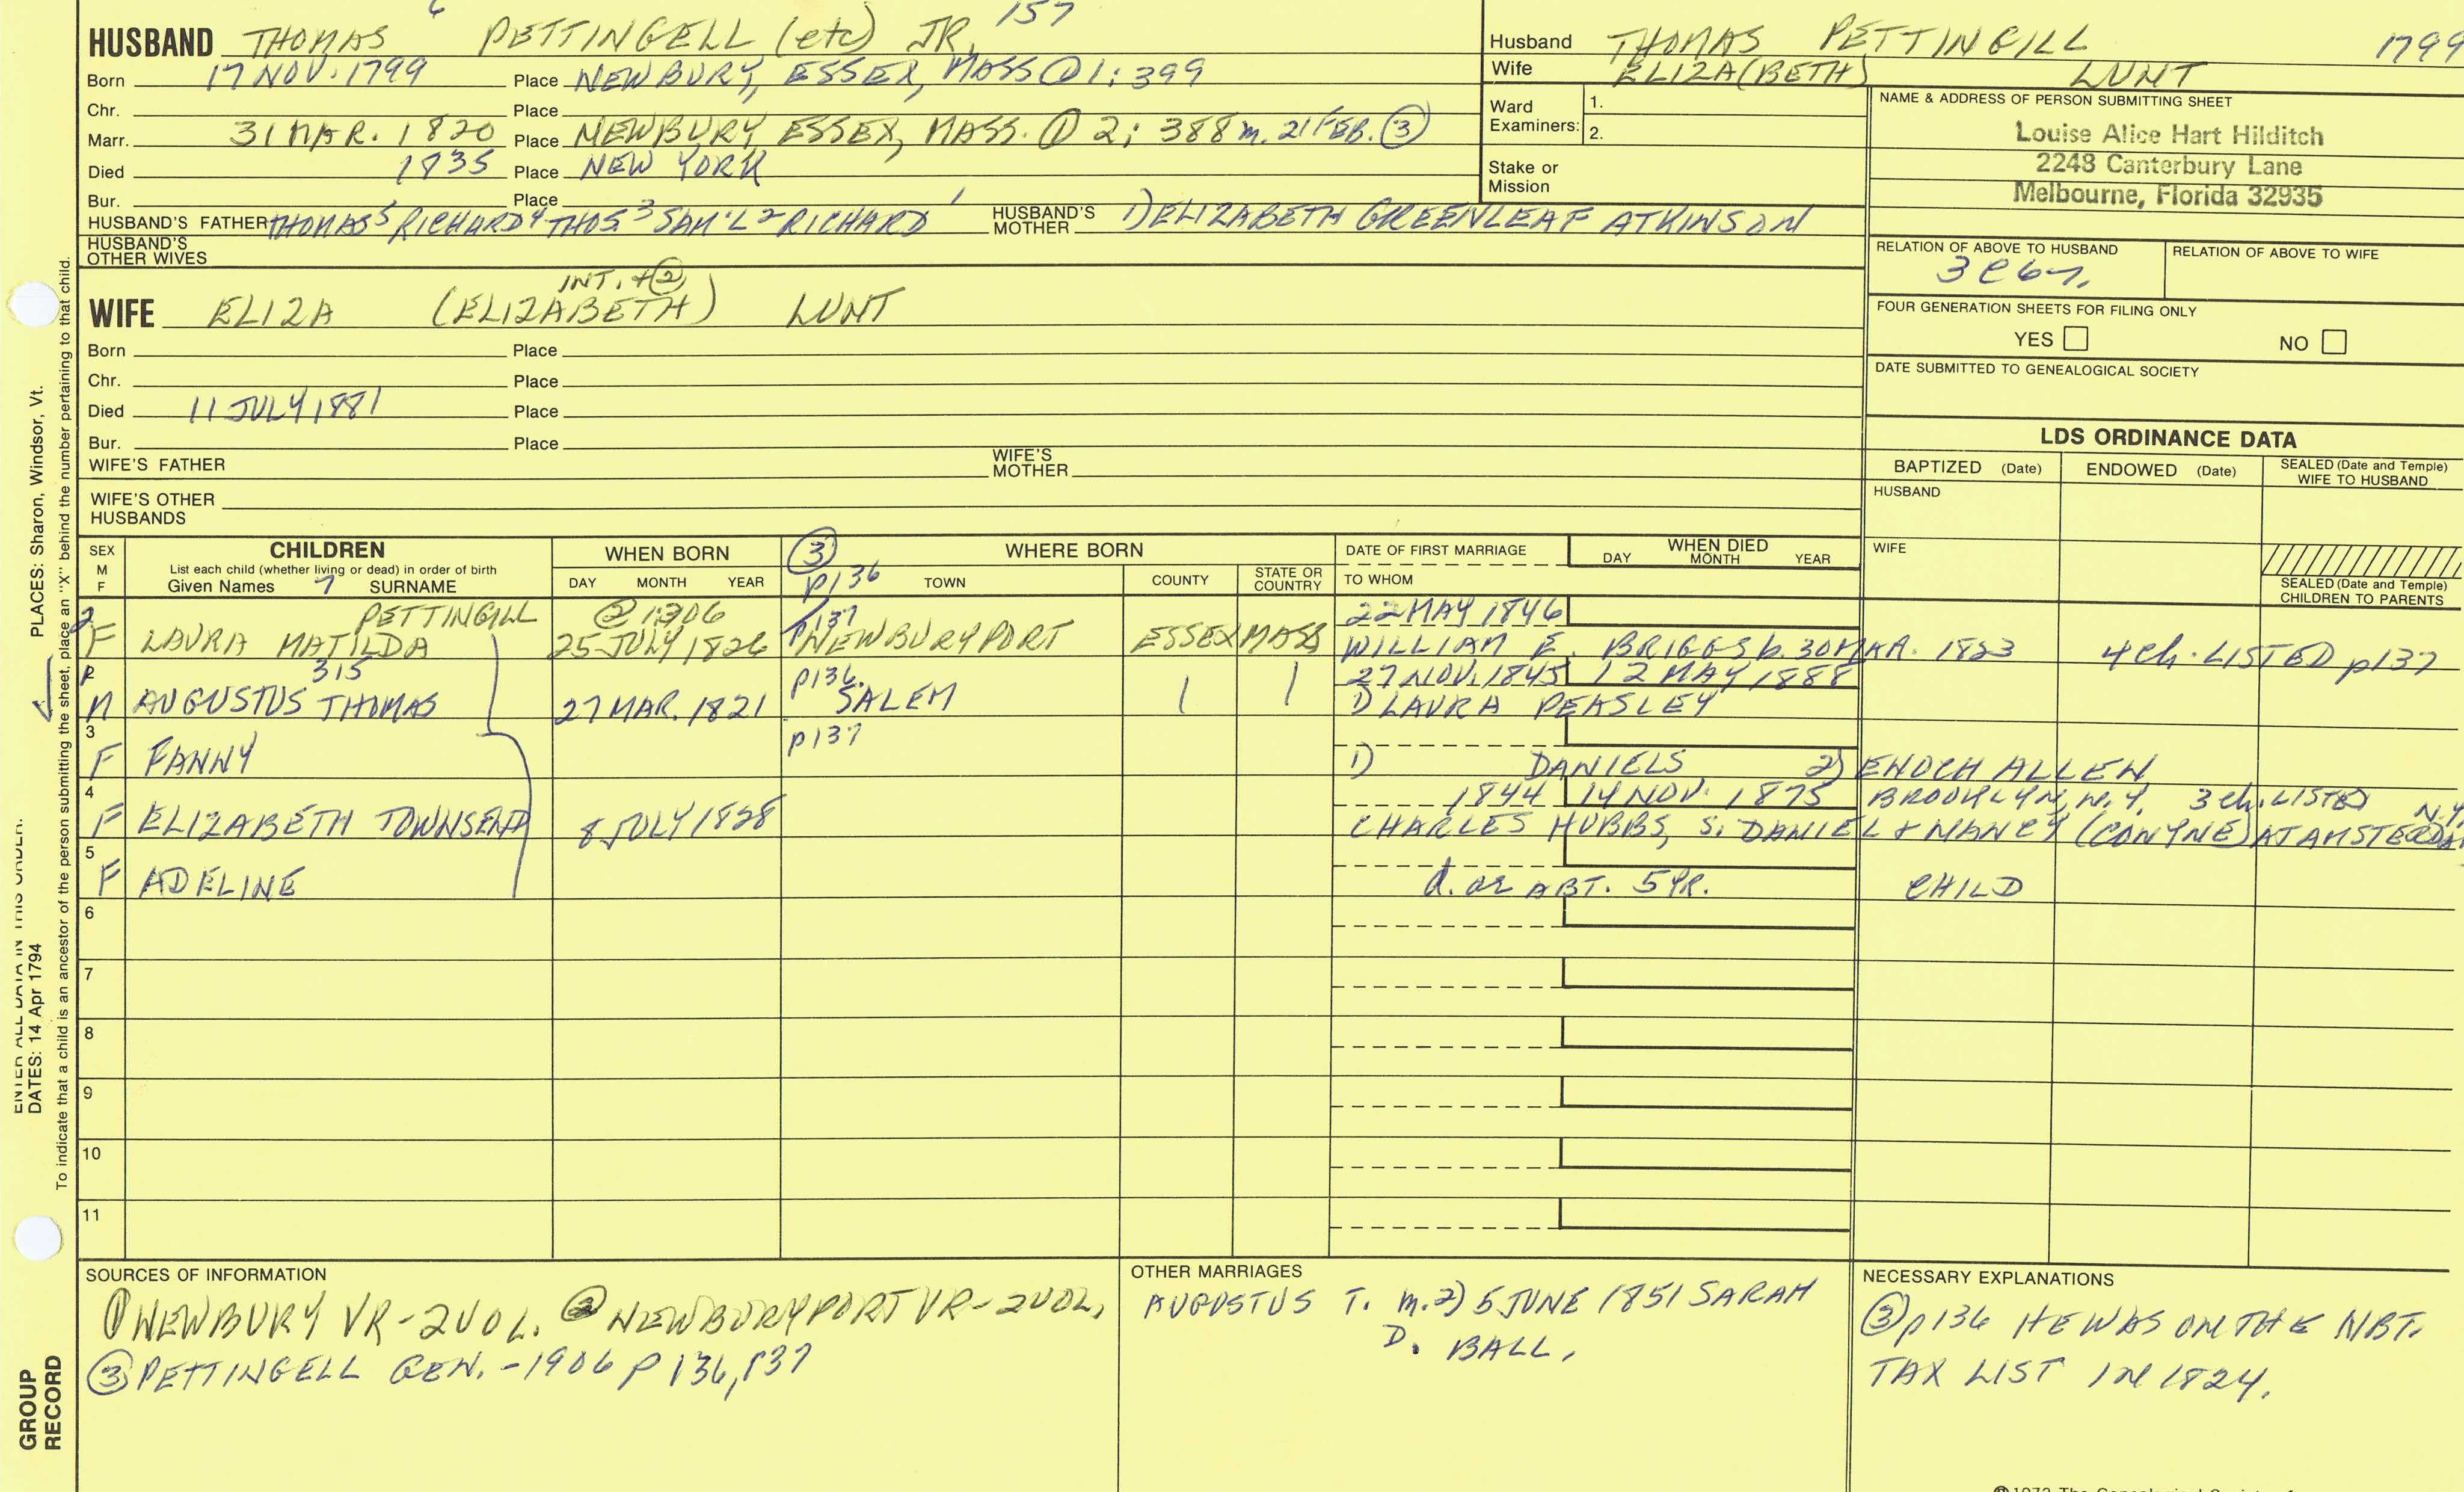 6 157
HUSBAND THOMAS PETTINGELL (etc) JR,
Born 17 NOV. 1799 Place NEWBURY, ESSEX, MASS ① 1: 399
Chr. Place
Marr. 31 MAR. 1820 Place NEWBURY ESSEX, MASS. ① 2: 388 m. 21 FEB. ③
Died 1835 Place NEW YORK
Bur. Place
HUSBAND'S FATHER THOMAS⁵ RICHARD⁴ THOS.³ SAM'L² RICHARD¹ HUSBAND'S MOTHER 1) ELIZABETH GREENLEAF ATKINSON
HUSBAND'S OTHER WIVES
INT. + ②
WIFE ELIZA (ELIZABETH) LUNT
Born Place
Chr. Place
Died 11 JULY 1881 Place
Bur. Place
WIFE'S FATHER WIFE'S MOTHER
WIFE'S OTHER HUSBANDS
Husband THOMAS PETTINGILL 1799
Wife ELIZA(BETH) LUNT
Ward Examiners: 1.
2.
Stake or Mission
NAME & ADDRESS OF PERSON SUBMITTING SHEET
Louise Alice Hart Hilditch
2248 Canterbury Lane
Melbourne, Florida 32935
RELATION OF ABOVE TO HUSBAND RELATION OF ABOVE TO WIFE
FOUR GENERATION SHEETS FOR FILING ONLY
YES NO
DATE SUBMITTED TO GENEALOGICAL SOCIETY
LDS ORDINANCE DATA
BAPTIZED (Date) ENDOWED (Date) SEALED (Date and Temple) WIFE TO HUSBAND
HUSBAND
WIFE
SEALED (Date and Temple) CHILDREN TO PARENTS
SEX M F CHILDREN WHEN BORN ③ WHERE BORN DATE OF FIRST MARRIAGE WHEN DIED
List each child (whether living or dead) in order of birth DAY MONTH YEAR
Given Names 7 SURNAME DAY MONTH YEAR p136 TOWN COUNTY STATE OR COUNTRY TO WHOM
PETTINGILL ② 1:306 p137 22 MAY 1846
2 F LAURA MATILDA 25 JULY 1826 NEWBURYPORT ESSEX MASS WILLIAM E. BRIGGS b. 30 MAR. 1823 4 ch. LISTED p137
315 p136. 27 NOV. 1845 12 MAY 1888
M AUGUSTUS THOMAS 27 MAR. 1821 SALEM 1) LAURA PEASLEY
3 p137
F FANNY 1) DANIELS 2) ENOCH ALLEN
4 1844 14 NOV. 1875 BROOKLYN, N.Y. 3 ch. LISTED N.Y.
F ELIZABETH TOWNSEND 8 JULY 1828 CHARLES HUBBS, S. DANIEL & NANCY (CONYNE) AT AMSTERDAM
5
F ADELINE d. ABT. 5 YR. CHILD
6
7
8
9
10
11
SOURCES OF INFORMATION
① NEWBURY VR - 2 VOL. ② NEWBURYPORT VR - 2 VOL,
③ PETTINGELL GEN. - 1906 p 136, 137
OTHER MARRIAGES
AUGUSTUS T. m. 2) 5 JUNE 1851 SARAH
D. BALL,
NECESSARY EXPLANATIONS
③ p136 HE WAS ON THE NBT.
TAX LIST IN 1824.
ENTER ALL DATA IN THIS ORDER:
DATES: 14 Apr 1794 PLACES: Sharon, Windsor, Vt.
To indicate that a child is an ancestor of the person submitting the sheet, place an "X" behind the number pertaining to that child.
GROUP
RECORD